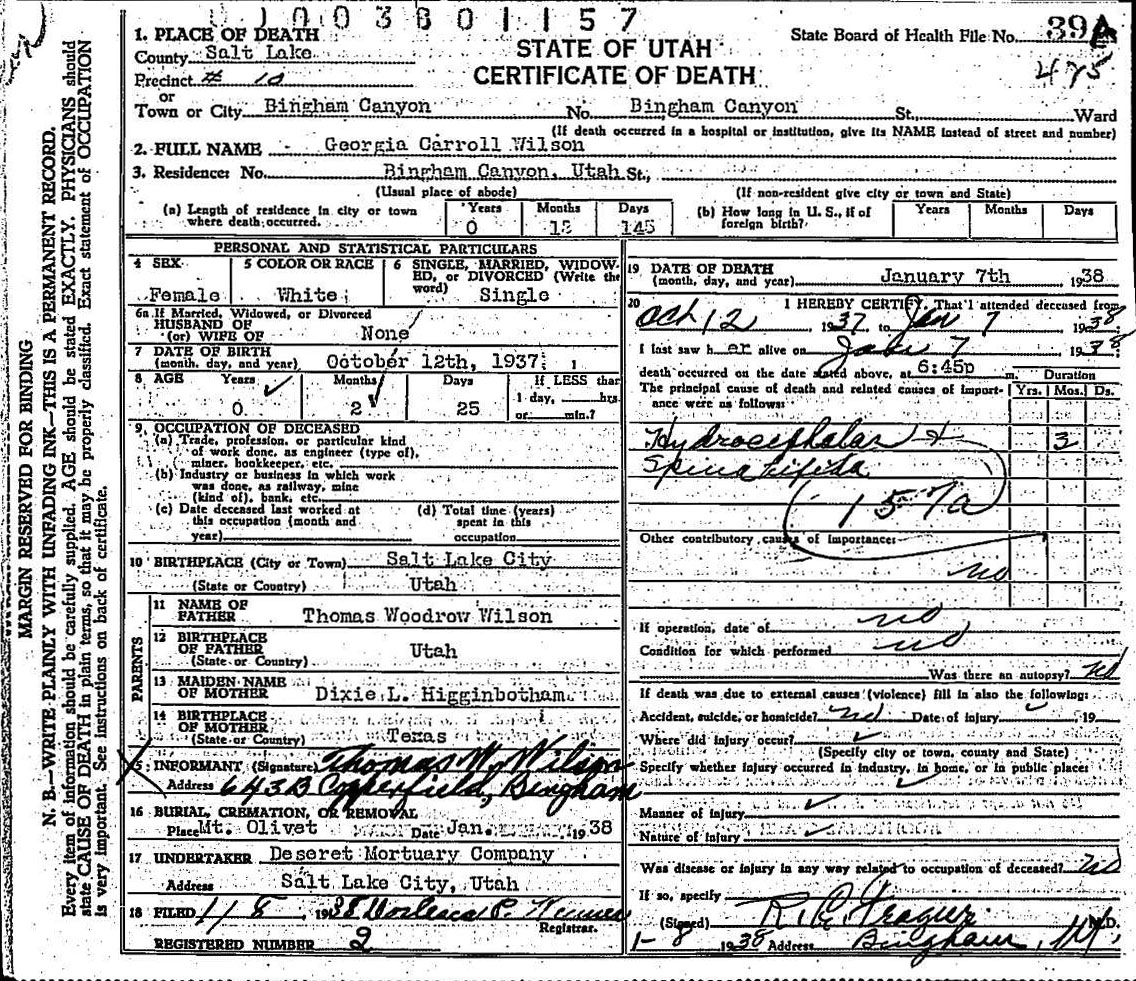 1003801157
1. PLACE OF DEATH
County Salt Lake
Precinct # 10
or
Town or City Bingham Canyon No. Bingham Canyon St., Ward
(If death occurred in a hospital or institution, give its NAME instead of street and number)
State Board of Health File No. 39A
475
STATE OF UTAH
CERTIFICATE OF DEATH
2. FULL NAME Georgia Carroll Wilson
3. Residence: No. Bingham Canyon, Utah St.,
(Usual place of abode) (If non-resident give city or town and State)
(a) Length of residence in city or town where death occurred. Years 0 Months Days 145
(b) How long in U. S., if of foreign birth? Years Months Days
MARGIN RESERVED FOR BINDING
N. B.—WRITE PLAINLY WITH UNFADING INK—THIS IS A PERMANENT RECORD.
Every item of information should be carefully supplied. AGE should be stated EXACTLY. PHYSICIANS should
state CAUSE OF DEATH in plain terms, so that it may be properly classified. Exact statement of OCCUPATION
is very important. See instructions on back of certificate.
PERSONAL AND STATISTICAL PARTICULARS
4 SEX Female
5 COLOR OR RACE White
6 SINGLE, MARRIED, WIDOW-
ED, or DIVORCED (Write the
word) Single
6a If Married, Widowed, or Divorced
HUSBAND OF
(or) WIFE OF None
7 DATE OF BIRTH
(month, day, and year) October 12th, 1937
8 AGE Years 0 Months 2 Days 25
If LESS than
1 day, hrs
or min.?
9 OCCUPATION OF DECEASED
(a) Trade, profession, or particular kind
of work done, as engineer (type of),
miner, bookkeeper, etc.
(b) Industry or business in which work
was done, as railway, mine
(kind of), bank, etc.
(c) Date deceased last worked at
this occupation (month and
year)
(d) Total time (years)
spent in this
occupation
10 BIRTHPLACE (City or Town) Salt Lake City
(State or Country) Utah
PARENTS
11 NAME OF
FATHER Thomas Woodrow Wilson
12 BIRTHPLACE
OF FATHER
(State or Country) Utah
13 MAIDEN NAME
OF MOTHER Dixie L. Higginbotham
14 BIRTHPLACE
OF MOTHER
(State or Country) Texas
15 INFORMANT (Signature) Thomas W. Wilson
Address 643B Copperfield, Bingham
16 BURIAL, CREMATION, OR REMOVAL
Place Mt. Olivet Date Jan. 1938
17 UNDERTAKER Deseret Mortuary Company
Address Salt Lake City, Utah
18 FILED 1/8, 1938
Registrar.
REGISTERED NUMBER 2
19 DATE OF DEATH
(month, day, and year) January 7th 1938
20 I HEREBY CERTIFY, That I attended deceased from
Oct 12 1937 to Jan 7 1938
I last saw h er alive on Jan 7 1938
death occurred on the date stated above, at 6:45p m. Duration
The principal cause of death and related causes of import-
ance were as follows: Yrs. Mos. Ds.
Hydrocephalas & 3
Spina bifida
157a
Other contributory causes of importance:
no
If operation, date of no
Condition for which performed no
Was there an autopsy? no
If death was due to external causes (violence) fill in also the following:
Accident, suicide, or homicide? no Date of injury , 19
Where did injury occur?
(Specify city or town, county and State)
Specify whether injury occurred in industry, in home, or in public place:
Manner of injury
Nature of injury
Was disease or injury in any way related to occupation of deceased? no
If so, specify
(Signed) M.D.
1-8 1938 Address Bingham, Ut.